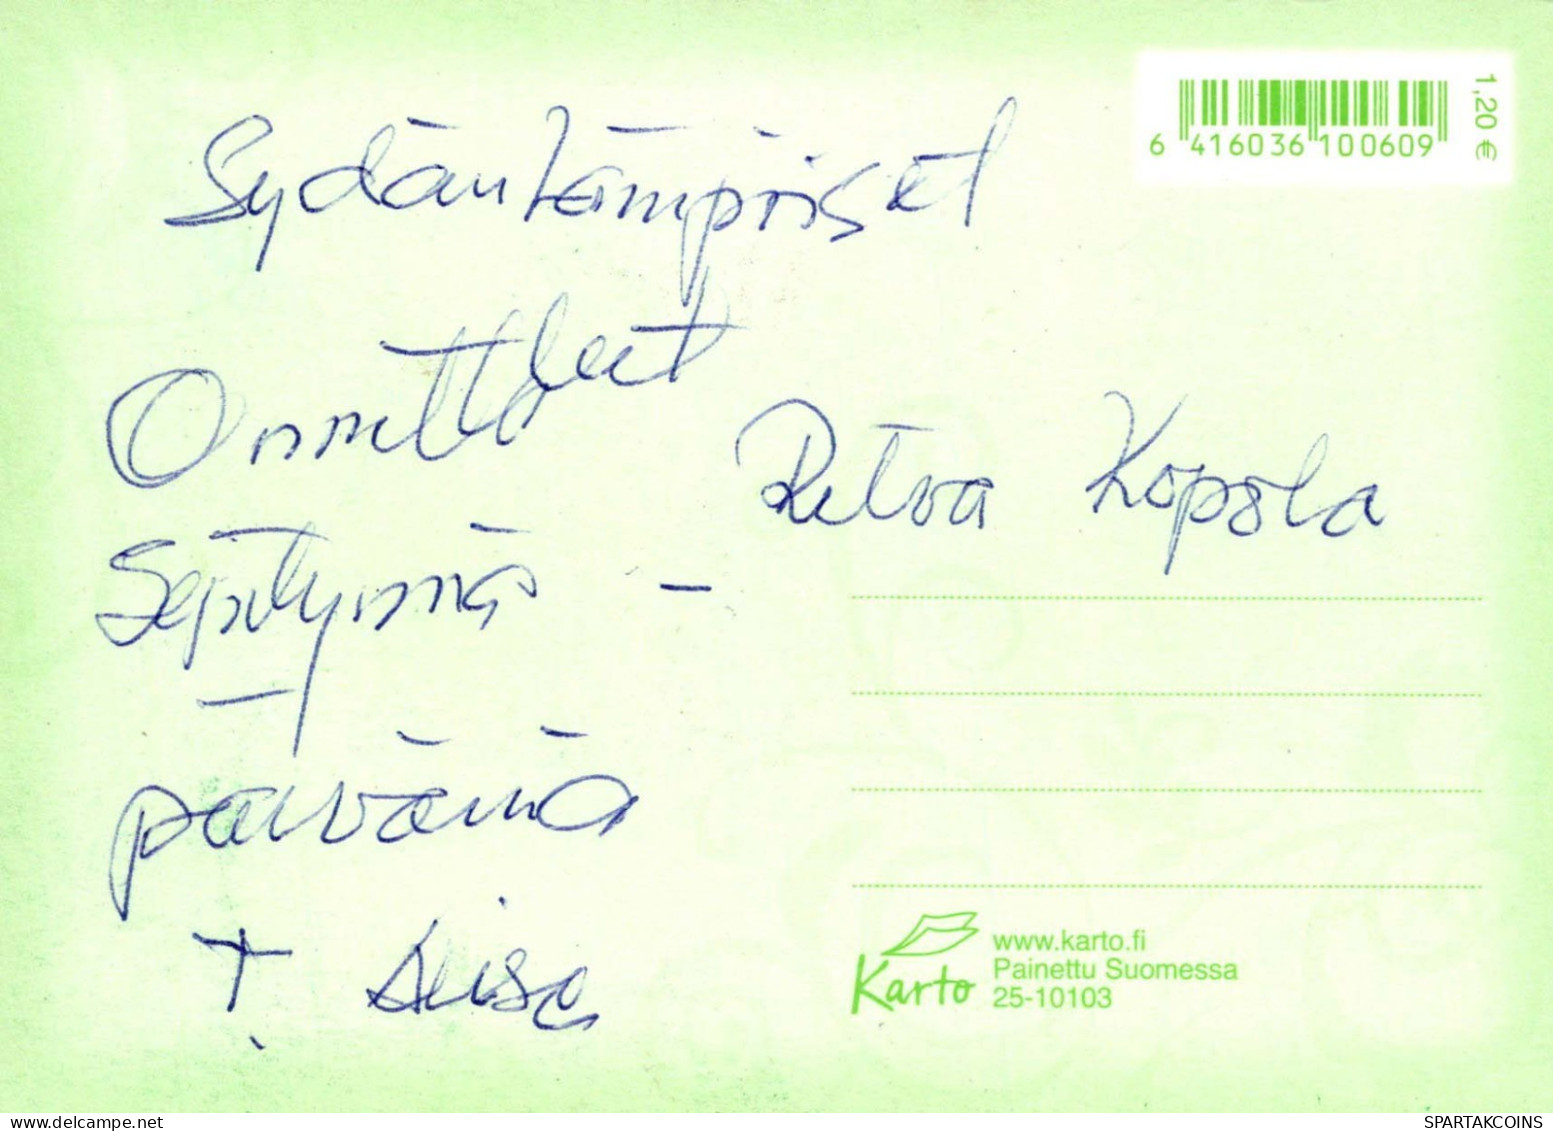 6 416036 100609
1,20 €
Sydänlämpöiset
Onnittelut
Syntymä-
-päivänä
T. Liisa
Ritva Kopola
Karto
www.karto.fi
Painettu Suomessa
25-10103
delcampe.net
SPARTAKCOINS